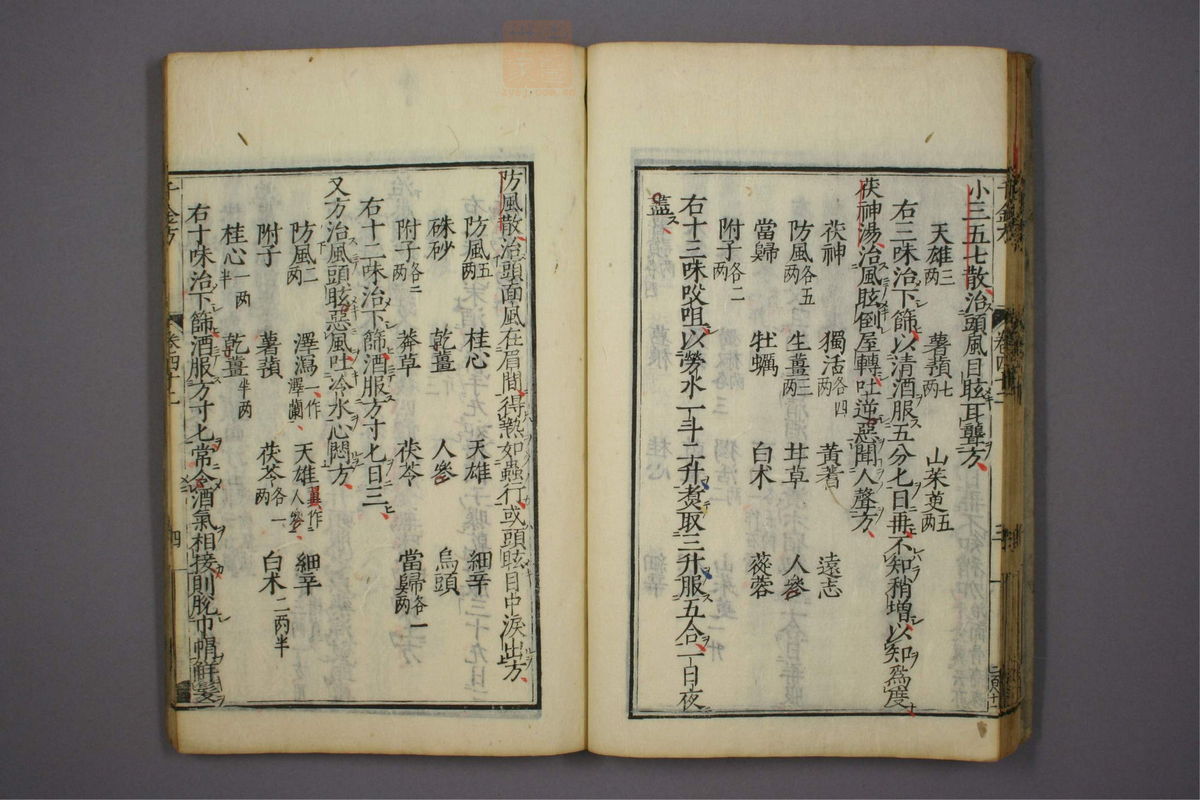 小三五七散治頭風目眩耳聾方
天雄三兩 薯蕷七兩 山茱萸五兩
右三味治下篩以清酒服五分匕日再不知稍增以知爲度
茯神湯治風眩倒屋轉吐逆惡聞人聲方
茯神 獨活各四兩 黃耆 遠志
防風各五兩 生薑三兩 甘草 人參
當歸 牡蠣 白朮 蓯蓉
附子各二兩
右十三味㕮咀以勞水一斗二升煮取三升服五合一日夜
盡
防風散治頭面風在眉間得熱如蟲行或頭眩目中淚出方
防風五兩 桂心 天雄 細辛
硃砂 乾薑 人參 烏頭
附子各二兩 莽草 茯苓 當歸各一兩
右十二味治下篩酒服方寸匕日三
又方治風頭眩惡風吐冷水心悶方
防風二兩 澤瀉一作澤蘭 天雄翼作人參 細辛
附子 薯蕷 茯苓各一兩 白朮二兩半
桂心一兩半 乾薑半兩
右十味治下篩酒服方寸匕常令酒氣相接則脫巾帽解髮
千金方 卷四十二 四